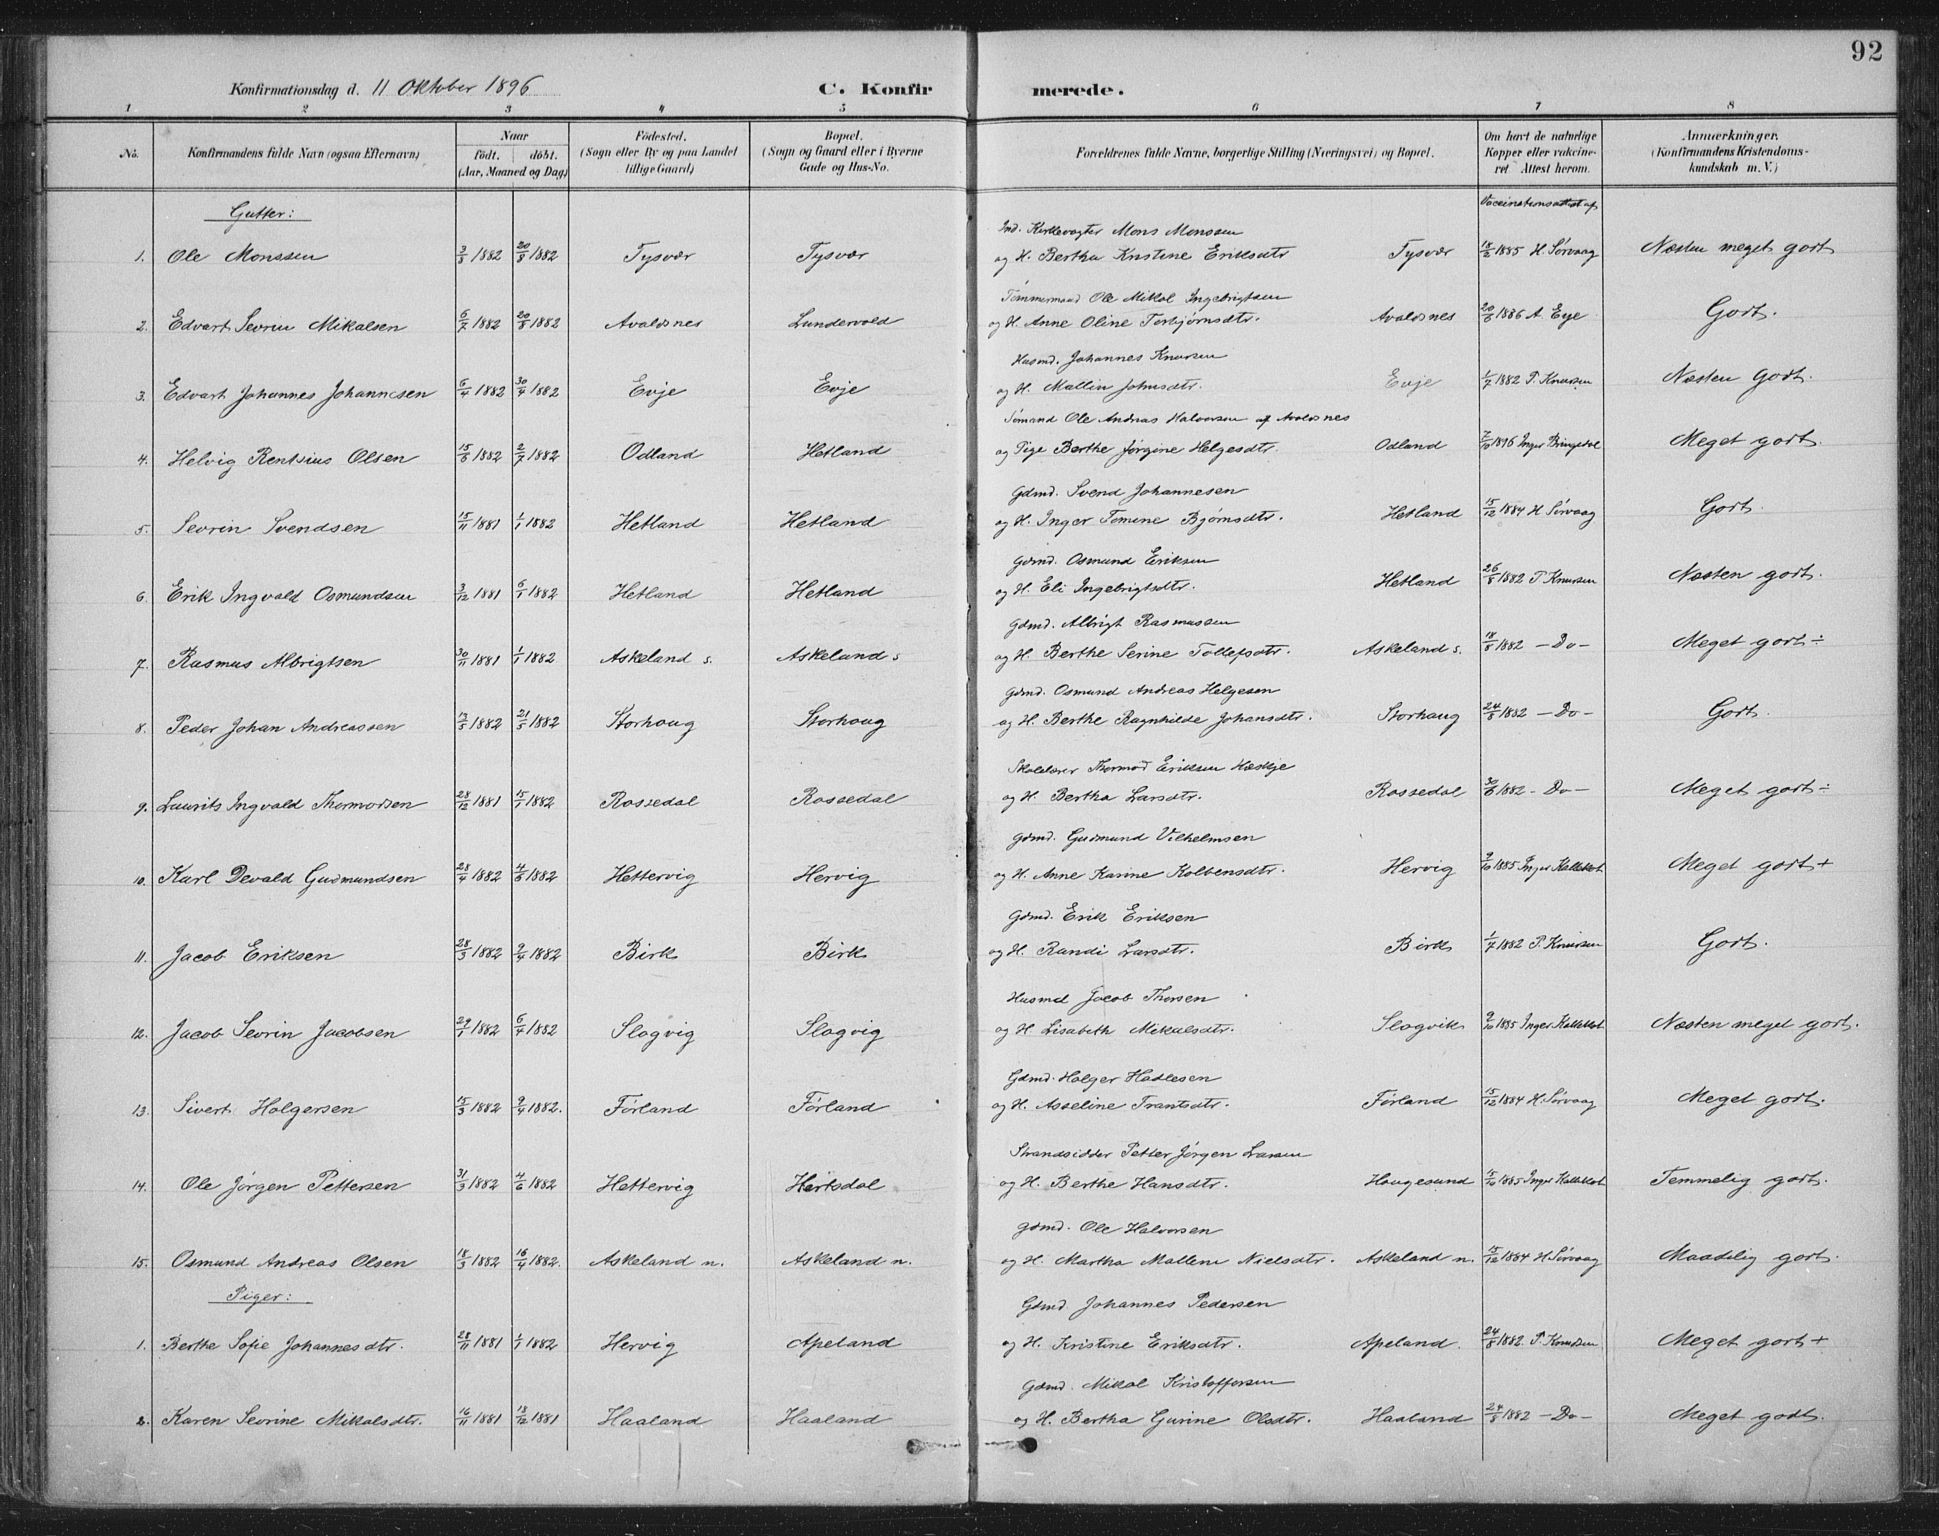 92
Konfirmationsdag d. 11 Oktober 1896 C. Konfirmerede.
1 2 3 4 5 6 7 8
No. Konfirmandens fulde Navn (ogsaa Efternavn) Naar født. døbt. (Aar, Maaned og Dag) Fødested. (Sogn eller By og paa Landet tillige Gaard) Bopæl. (Sogn og Gaard eller i Byerne Gade og Hus-No. Forældrenes fulde Navne, borgerlige Stilling (Næringsvei) og Bopæl. Om havt de naturlige Kopper eller vakcineret. Attest herom. Anmærkninger. (Konfirmandens Kristendomskundskab m. V.)
Gutter: Vaccinationsattest af
Ind. Kirkevagter Mons Monssen
1. Ole Monssen 3/8 1882 20/8 1882 Tysvær Tysvær og H. Bertha Kristine Eriksdtr Tysvær 18/2 1885 H. Sørvaag Næsten meget godt
Tømmermand Ole Mikal Ingebrigtsen
2. Edvart Sevrin Mikalsen 6/7 1882 20/8 1882 Avaldsnes Lundervold og H. Anne Oline Torbjørnsdtr. Avaldsnes 20/6 1886 A. Eye Godt.
Husmd. Johannes Knudsen
3. Edvart Johannes Johannesen 6/4 1882 30/4 1882 Evje Evje og H. Mallin Johnsdtr. Evje 1/7 1882 P. Knudsen Næsten Godt.
Sømand Ole Andreas Halvorsen af Avaldsnes
4. Helvig Rentsius Olsen 15/6 1882 2/7 1882 Odland Hetland og Pige Berthe Jørgine Helgesdtr. Odland 7/10 1896 Inger Bringedal Meget godt.
Gdmd. Svend Johannesen
5. Sevrin Svendsen 15/11 1881 1/1 1882 Hetland Hetland og H. Inger Tomine Bjørnsdtr. Hetland 15/12 1884 H Sørvaag Godt.
Gdmd. Osmund Eriksen
6. Erik Ingvald Osmundsen 3/12 1881 6/1 1882 Hetland Hetland og H. Eli Ingebrigtsdtr. Hetland 26/8 1882 P. Knudsen Næsten godt.
Gdmd. Albrigt Rasmussen
7. Rasmus Albrigtsen 30/11 1881 1/1 1882 Askeland s. Askeland s og H. Berthe Serine Tollefsdtr. Askeland s. 18/8 1882 — Do — Meget godt ÷
Gdmd. Osmund Andreas Helgesen
8. Peder Johan Andreassen 13/5 1882 21/5 1882 Storhaug Storhaug og H. Berthe Ragnhilde Johansdtr. Storhaug 24/8 1882 — Do — Godt.
Skolelærer Thormod Eriksen Hæskje
9. Laurits Ingvald Thormodsen 28/12 1881 15/1 1882 Rossedal Rossedal og H. Bertha Larsdtr. Rossedal 30/6 1882 - Do - Meget godt ÷
Gdmd. Gudmund Vilhelmsen
10. Karl Devald Gudmundsen 28/4 1882 4/6 1882 Hettervig Hervig og H. Anne Karine Kolbensdtr. Hervig 9/10 1885 Inger Kallekot Meget godt +
Gdmd. Erik Eriksen
11. Jacob Eriksen 28/3 1882 9/4 1882 Birk Birk og H. Randi Larsdtr. Birk 1/7 1882 P. Knudsen Godt.
Husmd Jacob Thorsen
12. Jacob Sevrin Jacobsen 29/1 1882 6/4 1882 Slogvig Slogvig og H. Lisabeth Mikalsdtr. Slogvik 9/10 1885 Inger Kallekot Næsten meget godt.
Gdmd. Holger Hadlesen
13. Sivert Holgersen 15/3 1882 9/4 1882. Førland Førland og H. Asseline Trantsdtr. Førland 15/12 1884 H. Sørvaag Meget godt.
Strandsidder Petter Jørgen Larsen
14. Ole Jørgen Pettersen 31/3 1882 4/6 1882 Hettervig Hertsdal og H. Berthe Hansdtr. Haugesund 15/10 1885 Inger Kallekot Temmelig godt.
Gdmd. Ole Halvorsen
15. Osmund Andreas Olsen 18/3 1882 16/4 1882. Askeland n. Askeland n. og H. Martha Mallene Nielsdtr. Askeland n. 15/12 1884 H Sørvaag Maadelig godt.
Piger:
Gdmd Johannes Pedersen
1. Berthe Sofie Johannesdtr. 28/11 1881 1/1 1882 Hervig Apeland og H. Kristine Eriksdtr. Apeland. 24/8 1882 P. Knudsen Meget godt +
Gdmd. Mikal Kristoffersen
2. Karen Sevrine Mikalsdtr. 16/11 1881 18/12 1881 Haaland Haaland og H. Bertha Gurine Olsdtr. Haaland 24/8 1882 — Do — Meget godt.